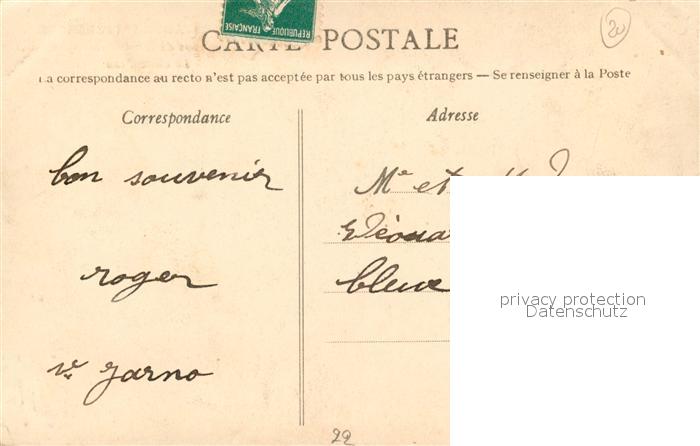 REPUBLIQUE FRANÇAISE
20
CARTE POSTALE
La correspondance au recto n'est pas acceptée par tous les pays étrangers — Se renseigner à la Poste
Correspondance
Adresse
bon souvenir
Mr et
roger
bleue
privacy protection
Datenschutz
Jarno
22